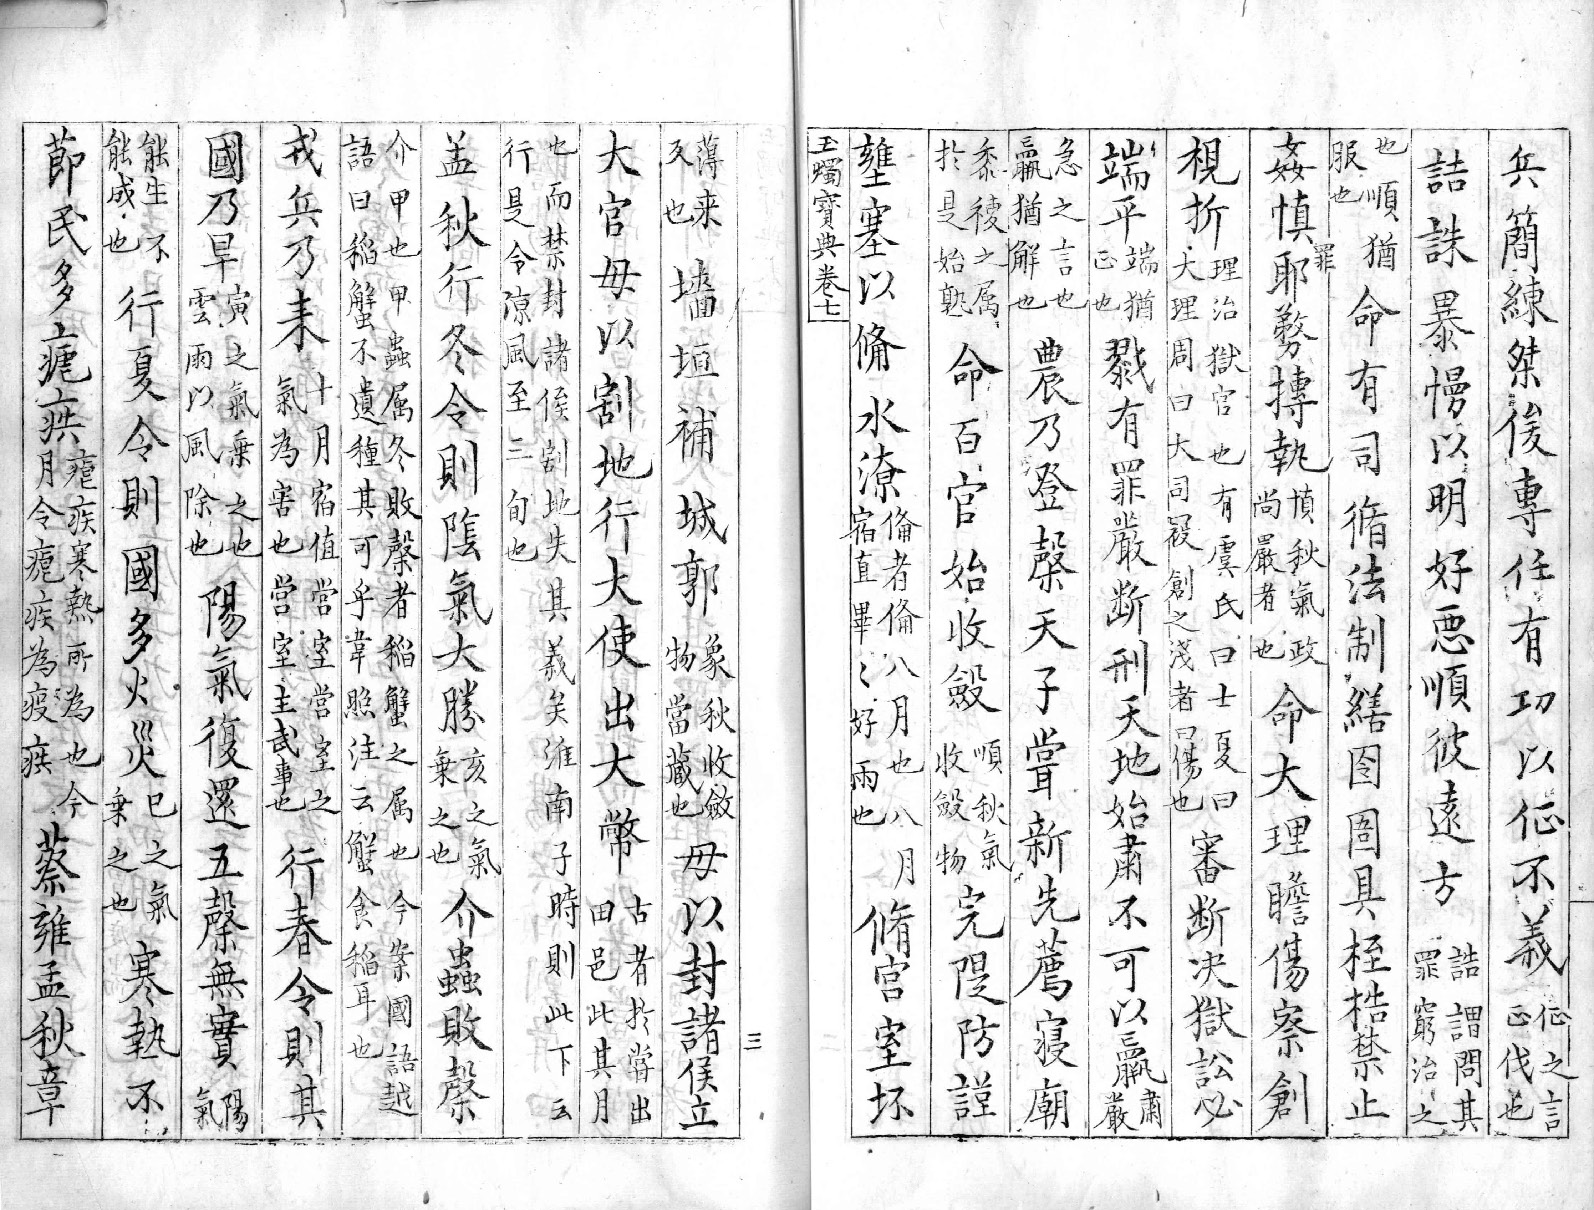 兵簡練桀俊專任有功以征不義征之言正伐也
詰誅暴慢以明好惡順彼遠方詰謂問其罪窮治之
也順猶服也命有司脩法制繕囹圄具桎梏禁止
姦慎罪耶務搏執慎秋氣政尚嚴者也命大理瞻傷察創
視折理治獄官也有虞氏曰士夏曰大理周曰大司寇創之淺者曰傷也審斷决獄訟必
端平端猶正也戮有罪嚴斷刑天地始肅不可以贏肅嚴
急之言也贏猶解也農乃登穀天子嘗新先薦寢廟
黍稷之属於是始熟命百官始收斂順秋氣收斂物完隄防謹
壅塞以備水潦備者備八月也八月宿直畢〻好雨也脩宮室坏
玉燭寶典卷七
三
薄来反也墻垣補城郭象秋收斂物當藏也毋以封諸侯立
大官毋以割地行大使出大幣古者於嘗出田邑此其月
也而禁封諸侯割地失其義矣淮南子時則此下云行是令涼風至三旬也
孟秋行冬令則陰氣大勝亥之氣乗之也介蟲敗穀
介甲也甲蟲属冬敗穀者稲蟹之属也今案國語越語曰稲蟹不遺種其可乎韋照注云蟹食稲耳也
戎兵乃来十月宿值營室營室之氣為害也營室主武事也行春令則其
國乃旱寅之氣乗之也雲雨以風除也陽氣復還五穀無實陽氣
能生不能成也行夏令則國多火災巳之氣乗之也寒熱不
節民多瘧疾瘧疾寒熱所為也今月令瘧疾為疫疾蔡雍孟秋章